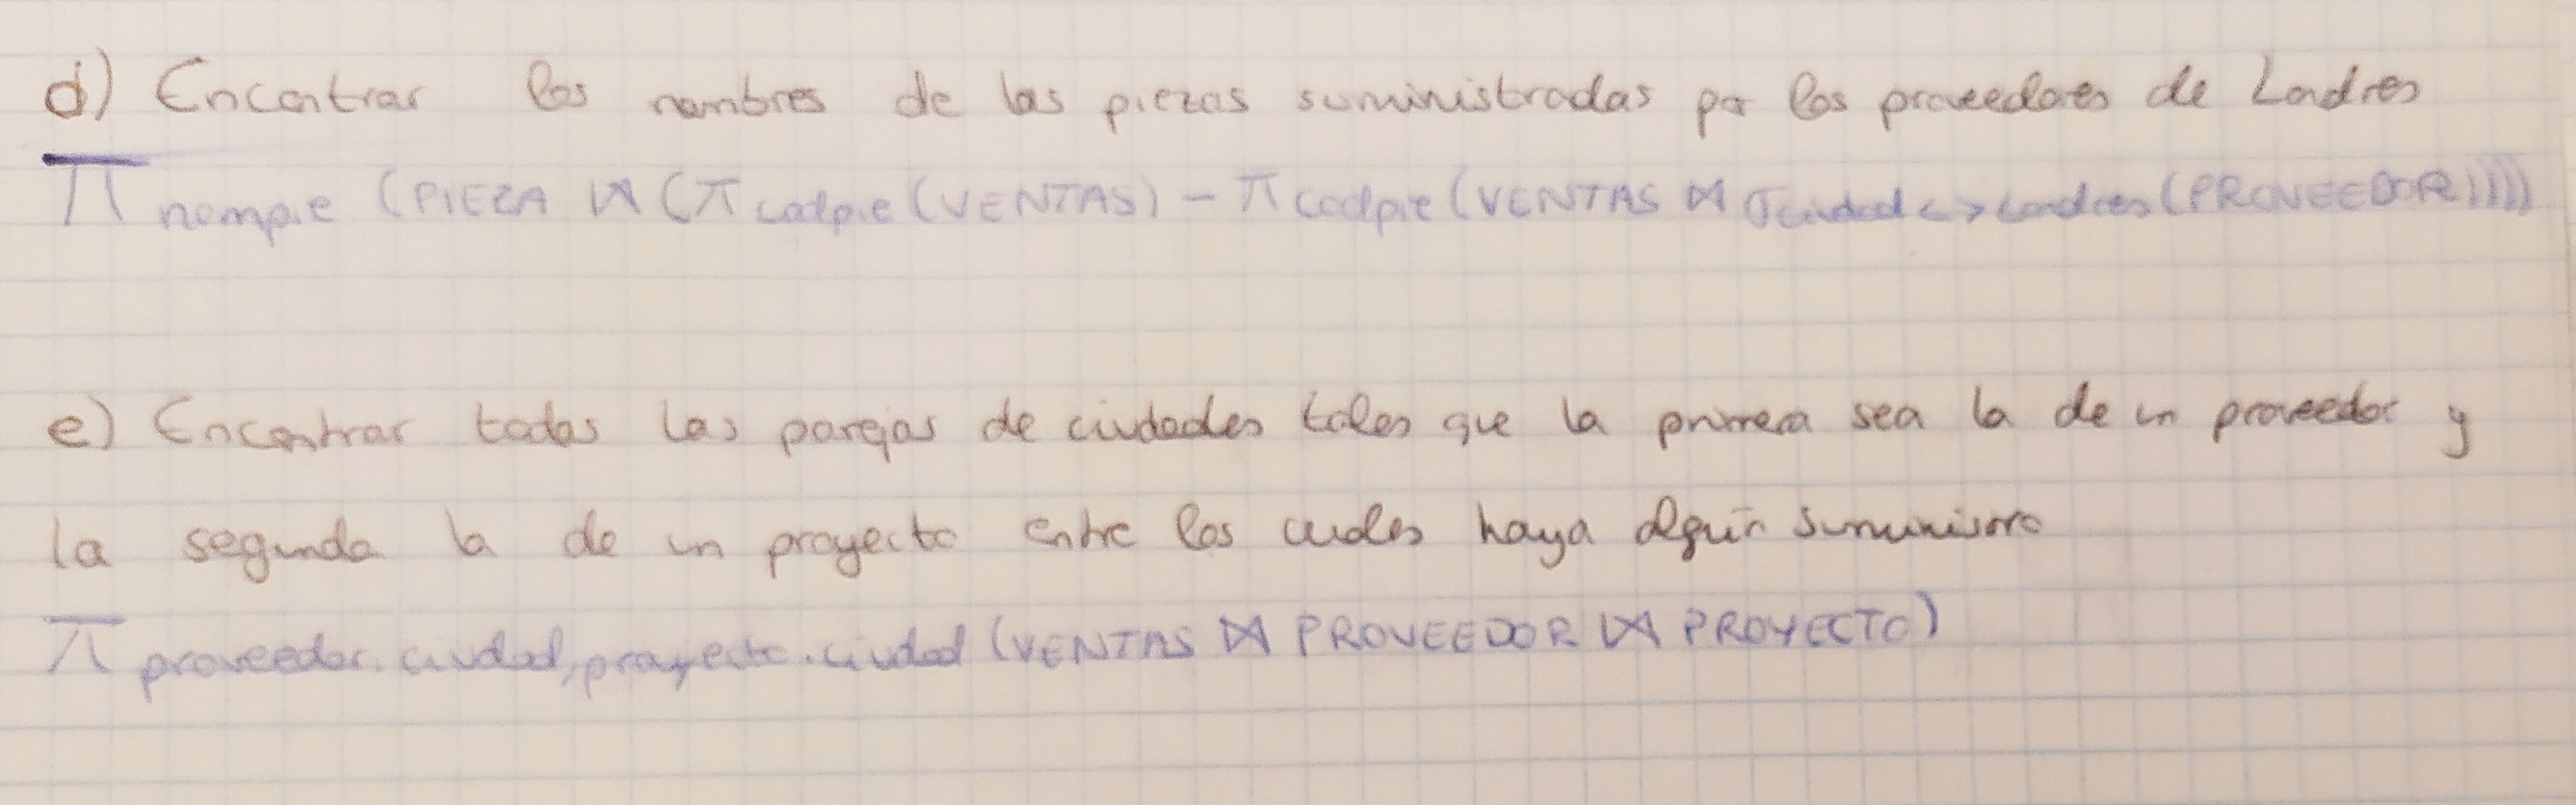 d) Encontrar los nombres de las piezas suministradas por los proveedores de Londres
π nompie (PIEZA ⋈ (π codpie (VENTAS) - π codpie (VENTAS ⋈ σ ciudad <> Londres (PROVEEDOR))))
e) Encontrar todas las parejas de ciudades tales que la primera sea la de un proveedor y
la segunda la de un proyecto entre los cuales haya algún suministro
π proveedor.ciudad, proyecto.ciudad (VENTAS ⋈ PROVEEDOR ⋈ PROYECTO)